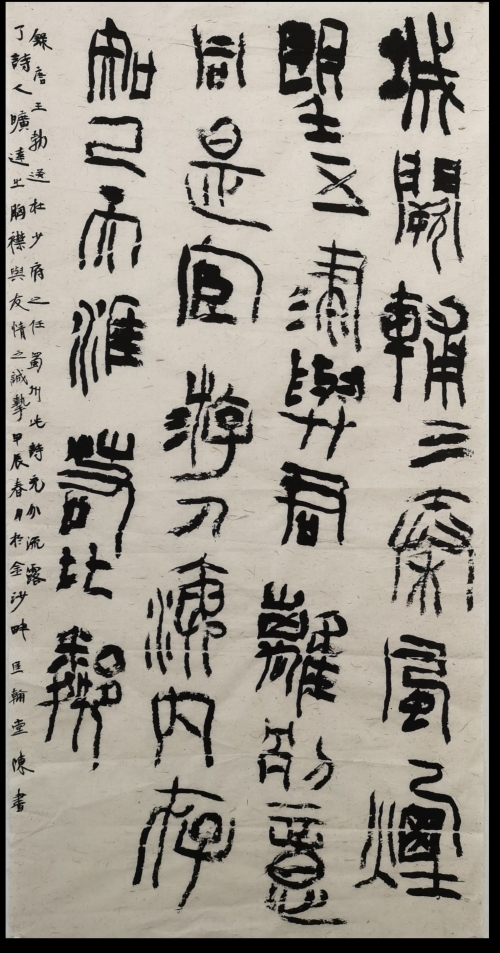 城闕輔三秦風煙
望五津與君離別意
同是宦游人海內存
知己天涯若比鄰
錄唐王勃送杜少府之任蜀州此詩充分流露
了詩人曠達之胸襟與友情之誠摯甲辰春月於金沙畔匡翰堂陳書